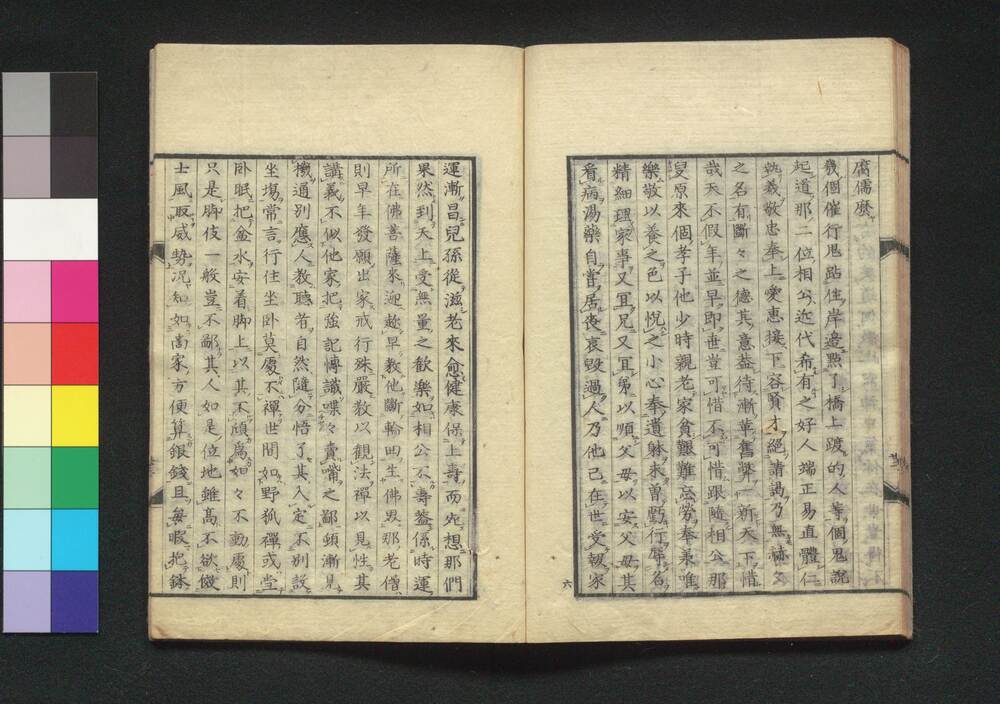 腐儒麼
幾個催行鬼跕住岸邊黙了橋上踱的人等個鬼說
起道那二位相公近代希有之好人端正易直體仁
執義敬忠奉上愛惠接下容賢才絕請謁乃無赫々
之名有斷々之德其意益待漸革舊弊一新天下惜
哉天不假年並早即世豈可惜不可惜跟隨相公那
叟原來個孝子他少時親老家貧艱難勞奉養唯
樂敬以養之色以悅之小心奉遺躰未曾虧行辱名
精細理家事又宜兄又宜弟以順父母以安父母其
看病湯藥自嘗居喪哀毀過人乃他已在世受報家
六
運漸昌兒孫從滋老來愈健康保上壽而死想那們
果然到天上受無量之歡樂如相公不壽蓋係時運
所在佛菩薩來迎趁早教他斷輪回生佛界那老僧
則早年發願出家戒行殊嚴教以觀法禪以見性其
講義不似他家把強記博識喋々賣嘴之鄙頻漸見
機通別應人教聽者自然隨分悟了其入定不別設
坐場常言行住坐卧莫處不禪世間如野狐禪或堂
卧眠把盆水安着脚上以其不傾為如々不動處則
只是脚伎一般豈不鄙其人如是位地雖高不欲傚
士風服威勢況知如尚家方便算銀錢且每暇抱鉢